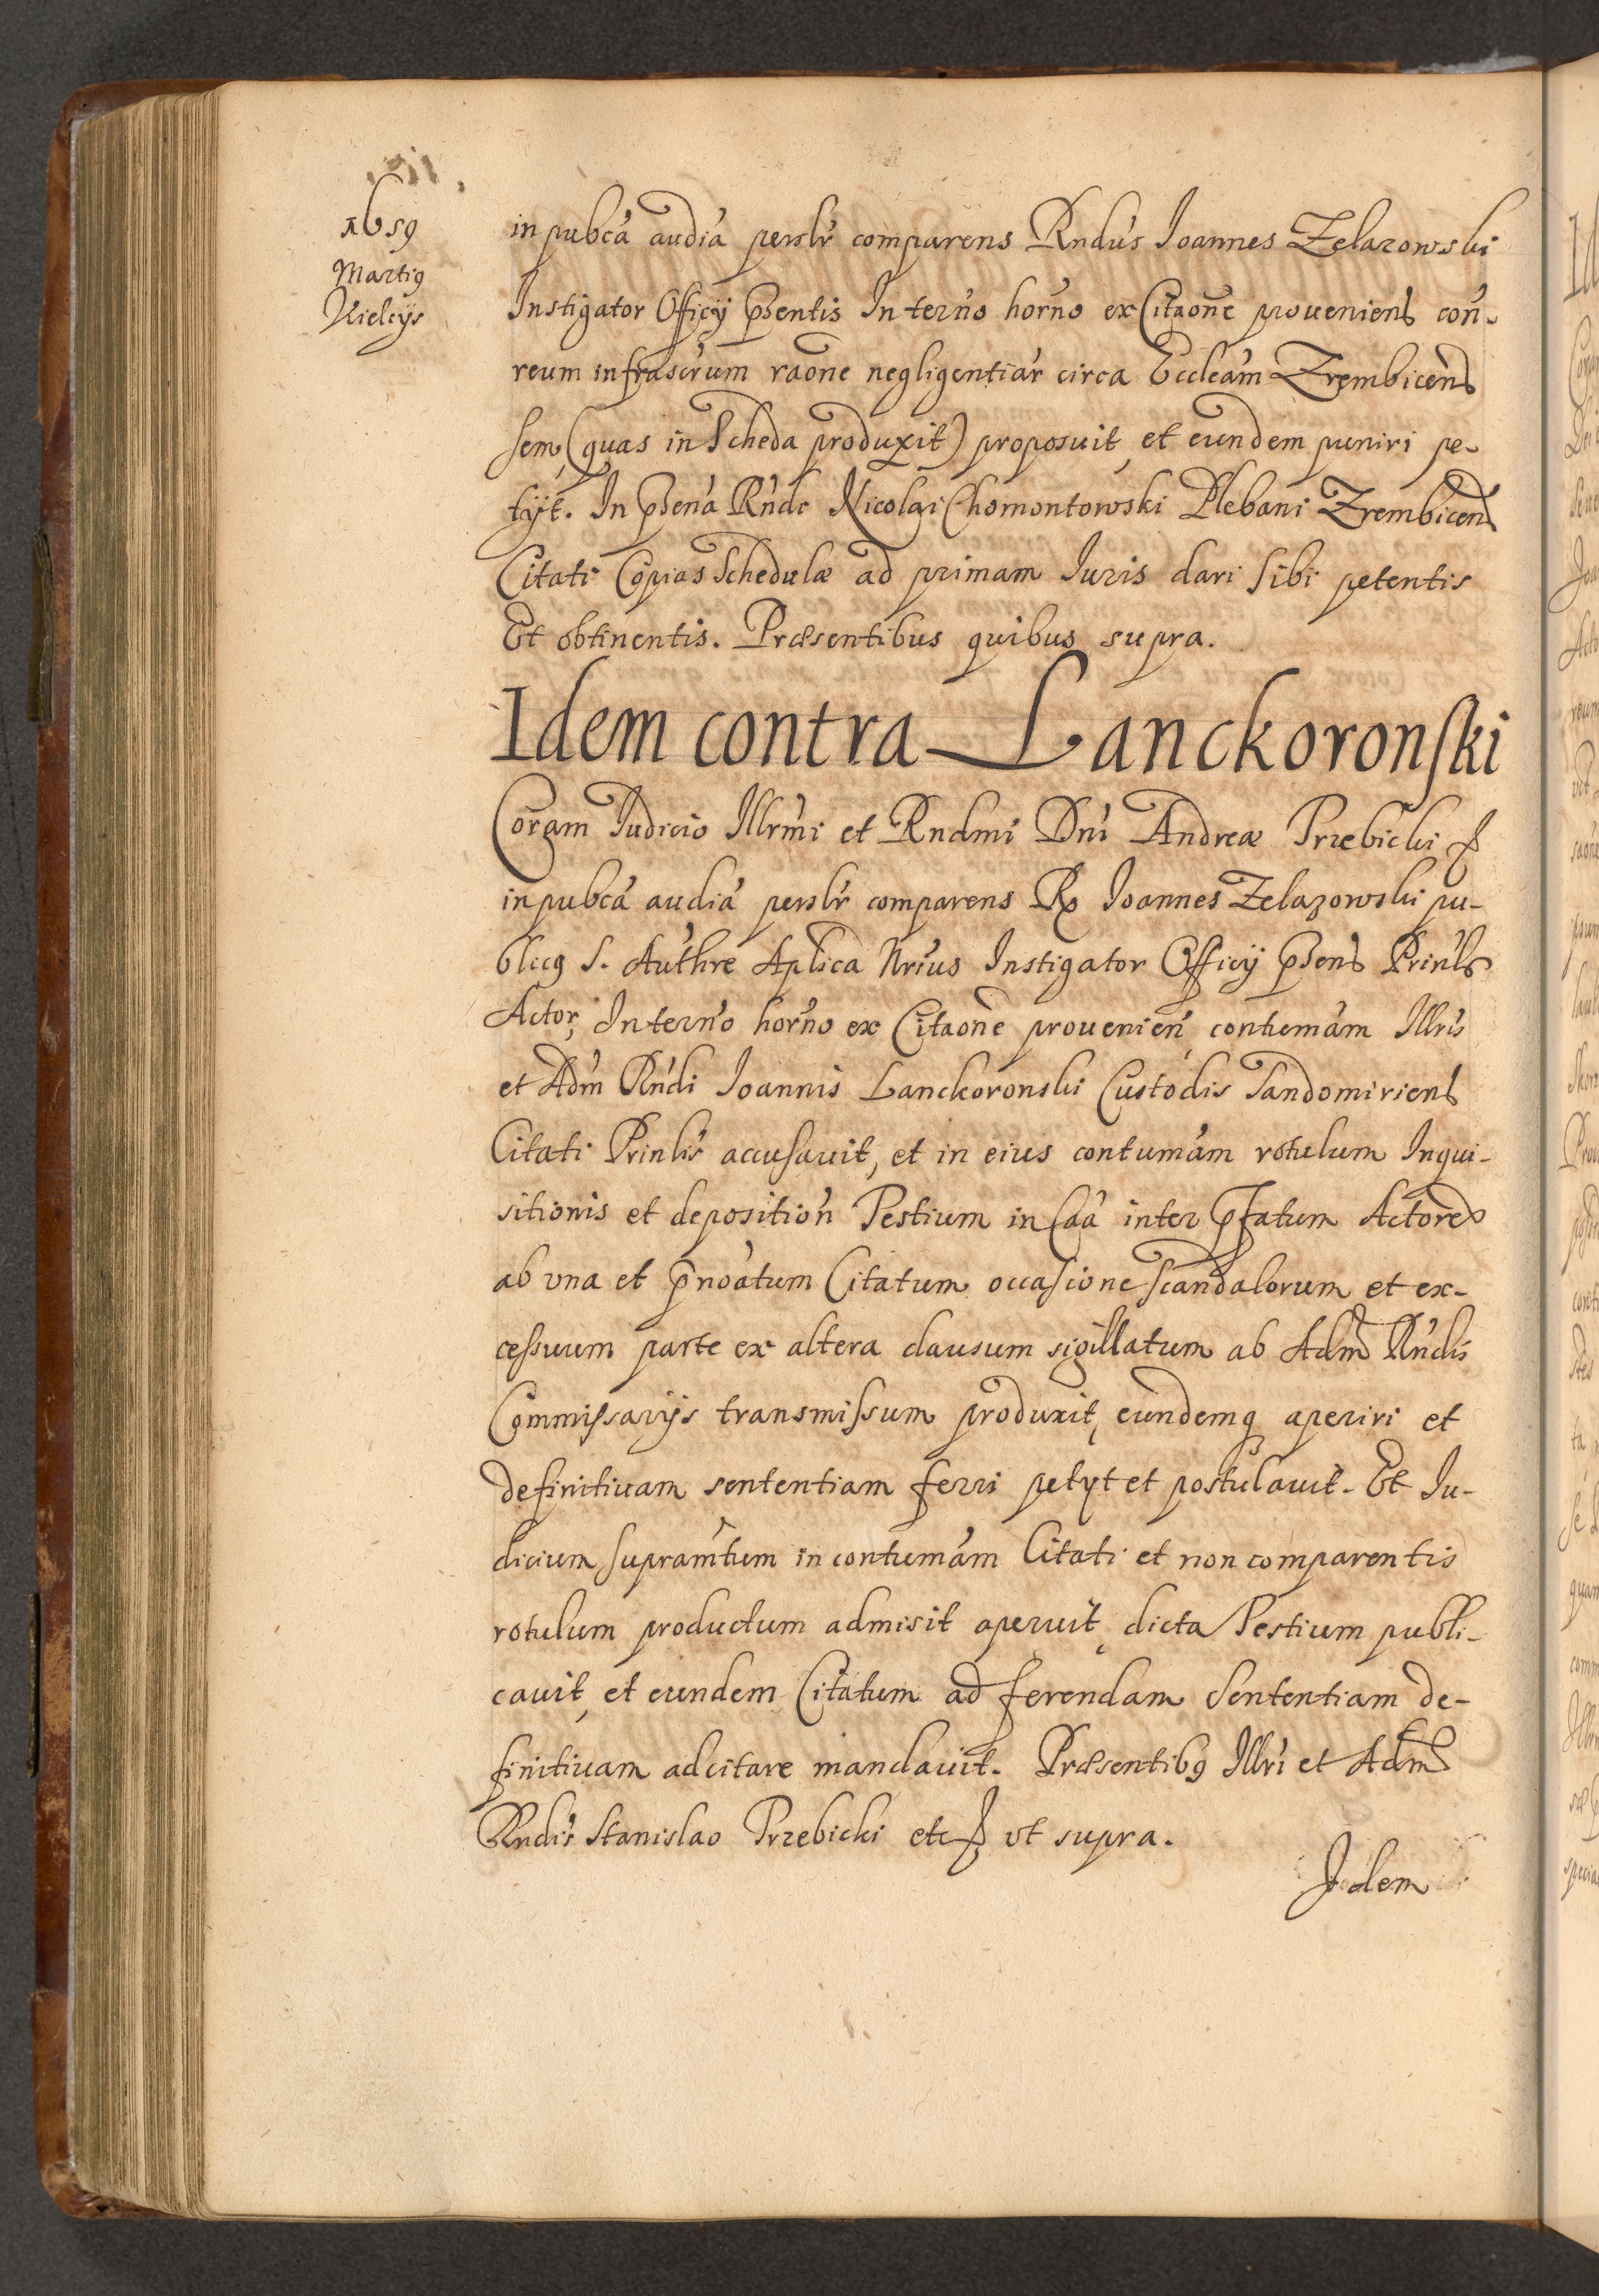 1659
Martig
Kielcijs
in pubca audia perslr comparens Rndus Ioannes Zelazowski
Instigator Officij pñsentis In terno horno ex Citaone proueniens con-
reum infrascrum raone negligentiar circa Eccleam Zrembicens
sem (quas in Scheda produxit) proposuit, et eundem puniri pe-
tijt. In pñsena Rndi Nicolai Chomontowski Plebani Zrembicens
Citati Copias Schedulæ ad primam Iuris dari sibi petentis
Et obtinentis. Præsentibus quibus supra.
Idem contra Lanckoronski
Coram Iudicio Illrmi et Rndmi Dni Andreæ Trzebicki
in pubca audia perslr comparens R Ioannes Zelazowski pu-
blicg S. Authre Aplica Nrius Instigator Officij pñsens Prinls
Actor, In terno horno ex Citaone prouenien, contumam Illris
et Adm Rndi Ioannis Lanckoronski Custodis Sandomiriens
Citati Prinlis accusauit, et in eius contumam rotulum Inqui-
sitionis et deposition Testium in Caa inter pfatum Actorem
ab vna et pnoatum Citatum occasione scandalorum et ex-
cessuum parte ex altera clausum sigillatum ab Adm Rndis
Commissarijs transmissum produxit, eundemq aperiri et
definitiuam sententiam ferri petyt et postulauit. Et Iu-
dicium supramtum in contumam Citati et non comparentis
rotulum productum admisit aperuit, dicta Testium publi-
cauit, et eundem Citatum ad ferendam Sententiam de-
finitiuam adcitare mandauit. Præsentibg Illri et Adm
Rndis Stanislao Trzebicki etc vt supra.
Idem